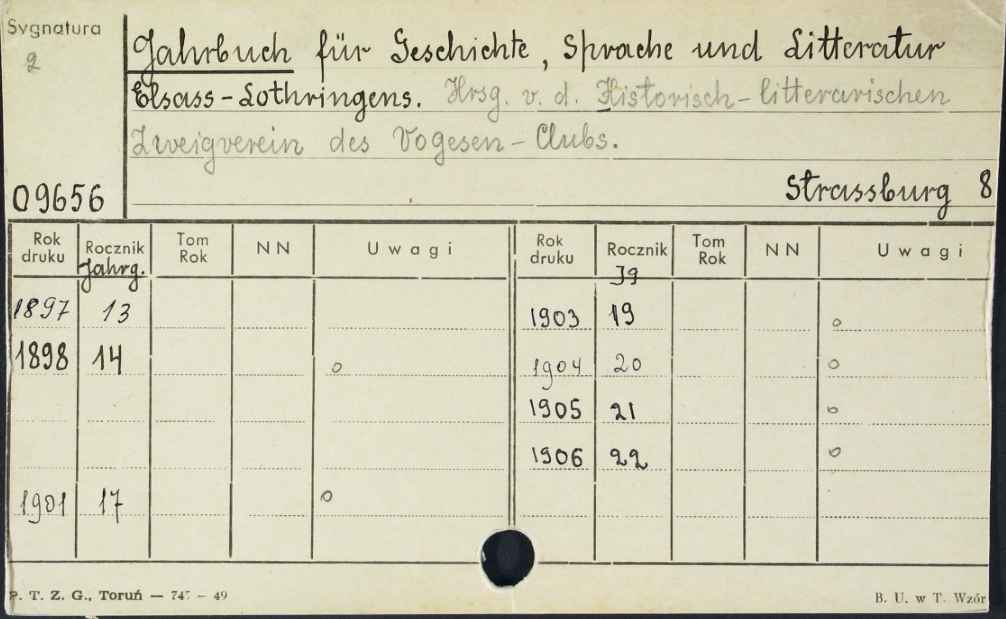 Sygnatura
2
Jahrbuch für Geschichte, Sprache und Litteratur
Elsass-Lothringens. Hrsg. v. d. Historisch-litterarischen
Zweigverein des Vogesen-Clubs.
09656
Strassburg 8
Rok druku Rocznik Tom Rok NN Uwagi Rok druku Rocznik Tom Rok NN Uwagi
Jahrg. Jg
1897 13 1903 19 o
1898 14 o 1904 20 o
1905 21 o
1906 22 o
1901 17 o
P. T. Z. G., Toruń — - 49
B. U. w T. Wzór